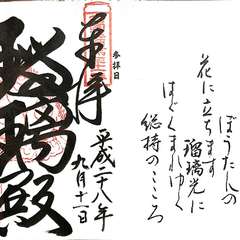 ぼうたんの
花に立ちます
瑠璃光に
はぐくまれゆく
総持のこころ
参拝日
奉拝
平成二十八年
九月十一日
瑠璃殿